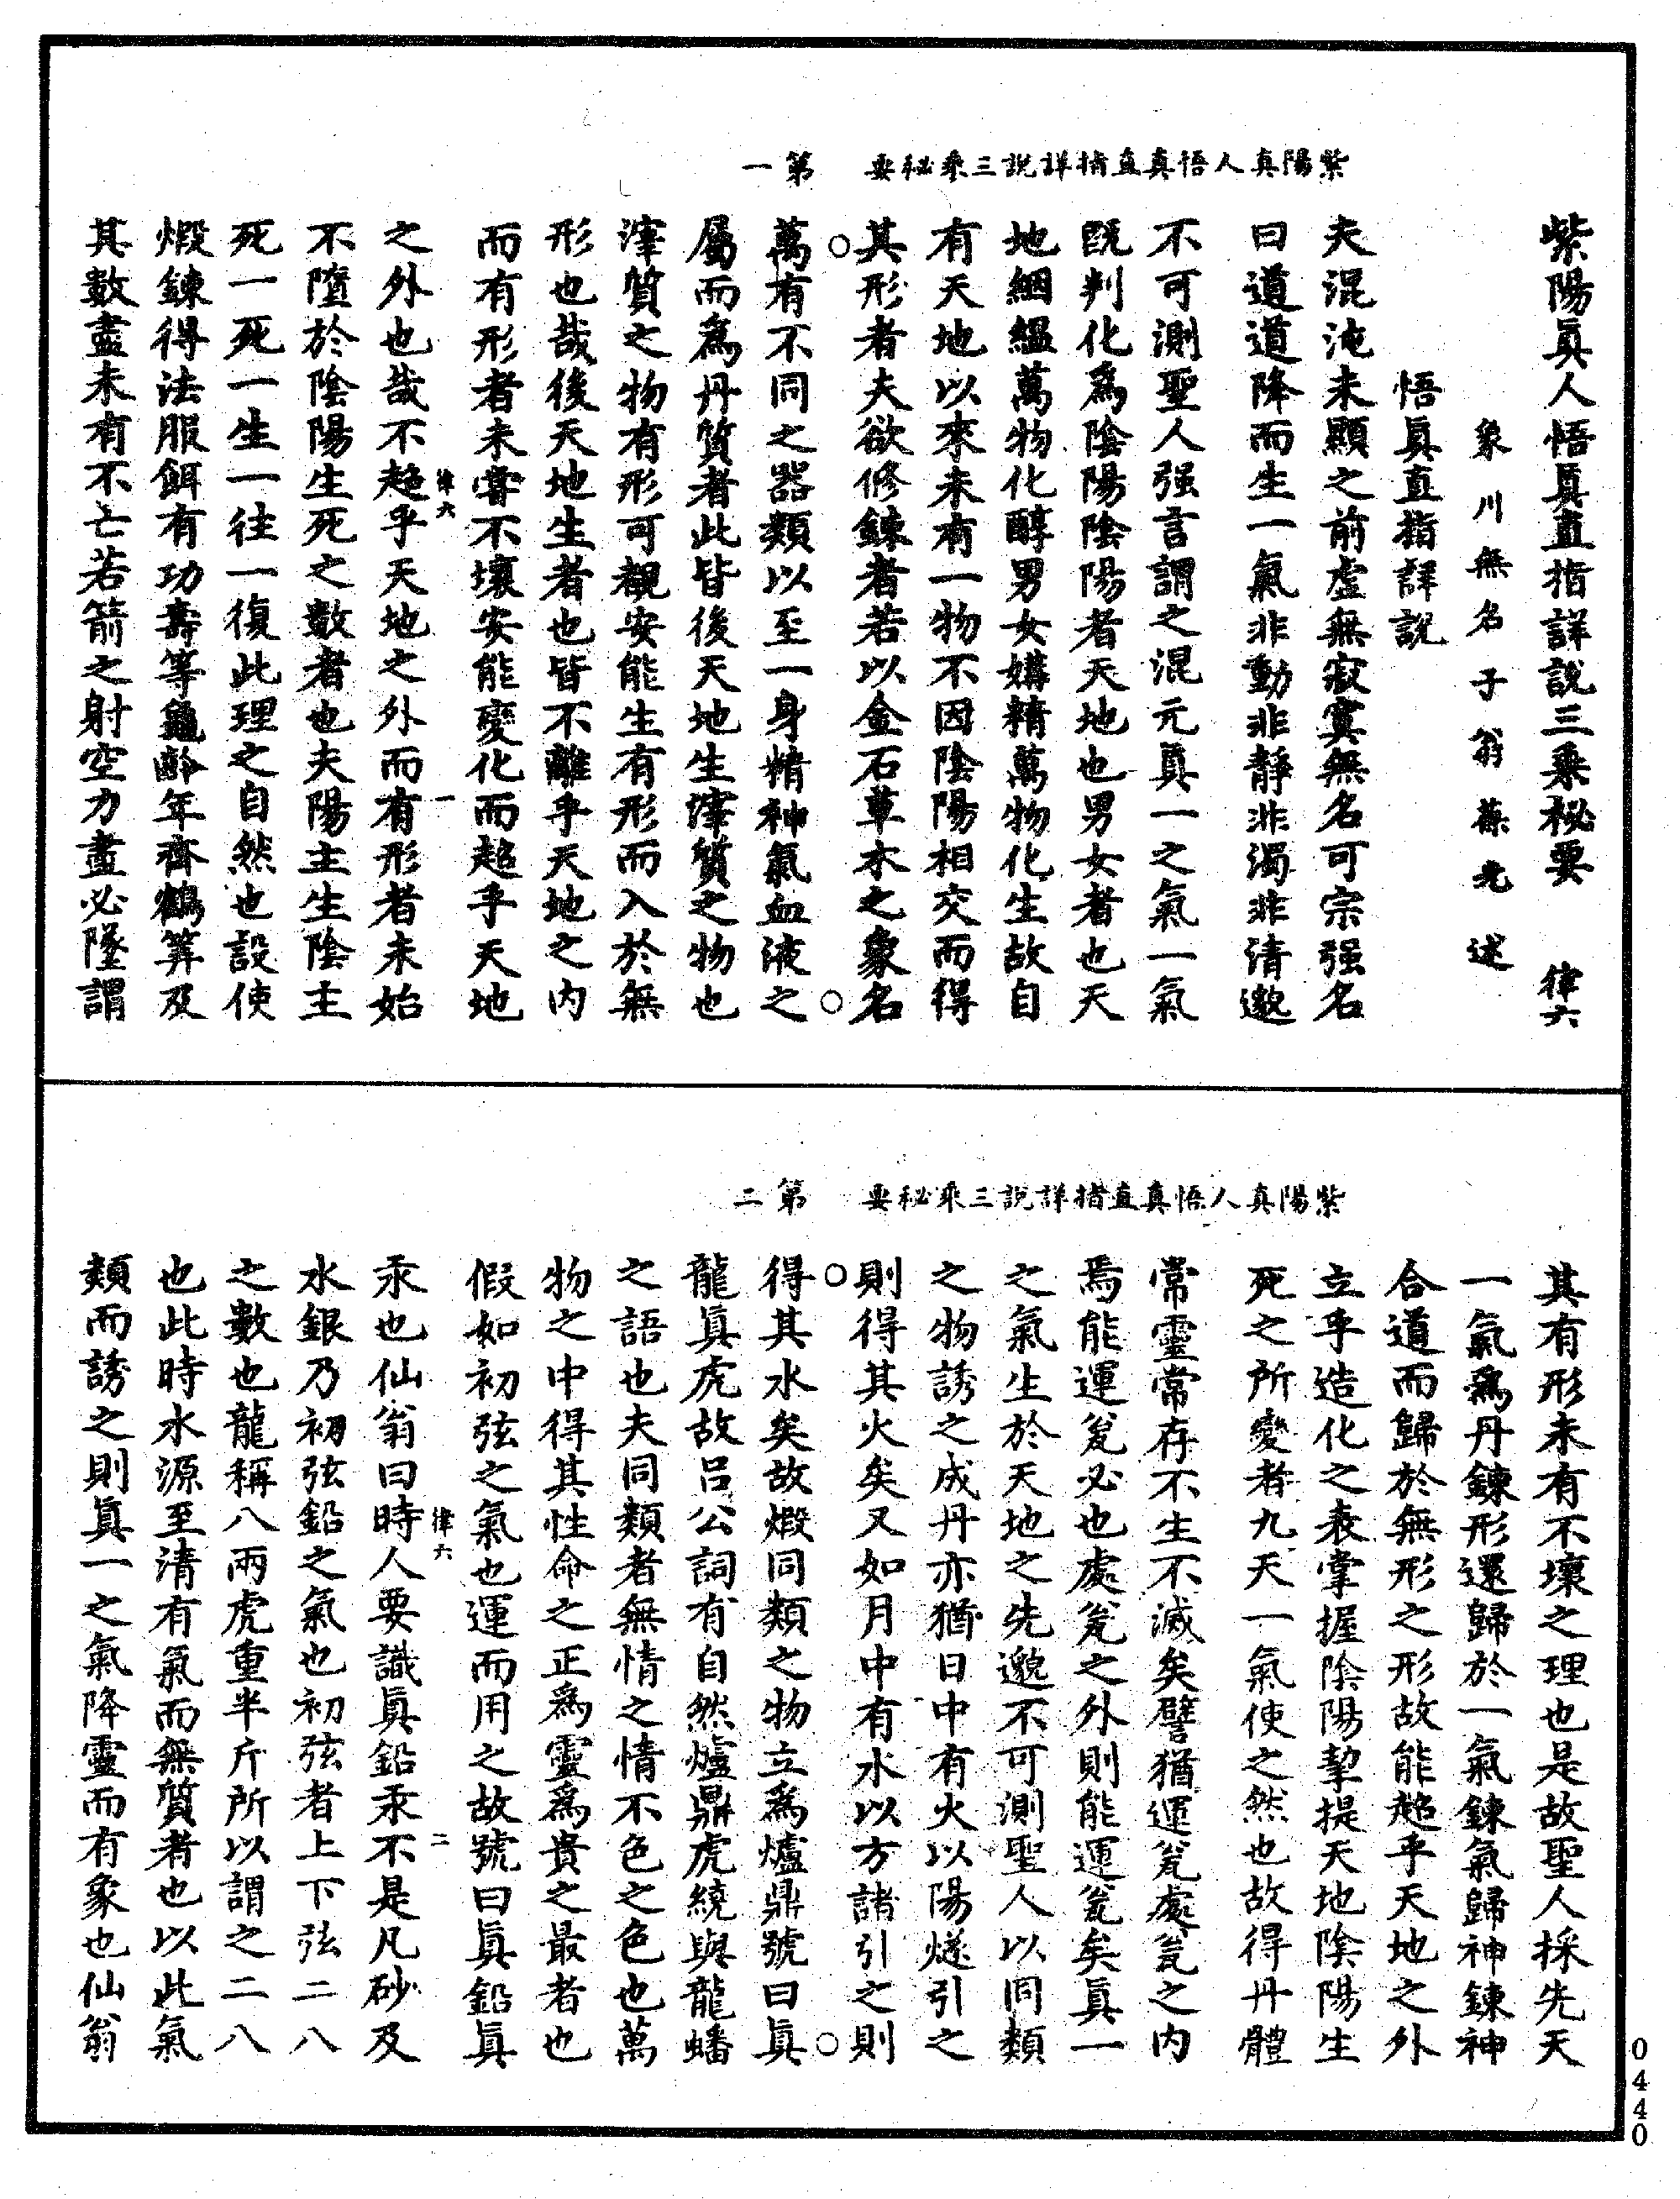 紫陽真人悟真直指詳說三乘秘要　第一
紫陽眞人悟眞直指詳說三乘秘要　律六
象川無名子翁葆光述
悟眞直指詳說
夫混沌未顯之前虛無寂寞無名可宗强名
曰道道降而生一氣非動非靜非濁非清邈
不可測聖人强言謂之混元眞一之氣一氣
旣判化爲陰陽陰陽者天地也男女者也天
地絪縕萬物化醇男女媾精萬物化生故自
有天地以來未有一物不因陰陽相交而得
其形者夫欲修鍊者若以金石草木之象名
○　○
萬有不同之器類以至一身精神氣血液之
屬而爲丹質者此皆後天地生滓質之物也
滓質之物有形可覩安能生有形而入於無
形也哉後天地生者也皆不離乎天地之內
而有形者未嘗不壞安能變化而超乎天地
律六　一
之外也哉不超乎天地之外而有形者未始
不墮於陰陽生死之數者也夫陽主生陰主
死一死一生一往一復此理之自然也設使
煅鍊得法服餌有功壽等龜齡年齊鶴筭及
其數盡未有不亡若箭之射空力盡必墜謂
紫陽真人悟真直指詳說三乘秘要　第二
其有形未有不壞之理也是故聖人採先天
一氣爲丹鍊形還歸於一氣鍊氣歸神鍊神
合道而歸於無形之形故能超乎天地之外
立乎造化之表掌握陰陽挈提天地陰陽生
死之所變者九天一氣使之然也故得丹體
常靈常存不生不滅矣譬猶運瓮處瓮之內
焉能運瓮必也處瓮之外則能運瓮矣眞一
之氣生於天地之先邈不可測聖人以同類
之物誘之成丹亦猶日中有火以陽燧引之
則得其火矣又如月中有水以方諸引之則
○　○
得其水矣故煅同類之物立爲爐鼎號曰眞
龍眞虎故呂公詞有自然爐鼎虎繞與龍蟠
之語也夫同類者無情之情不色之色也萬
物之中得其性命之正爲靈爲貴之最者也
假如初弦之氣也運而用之故號曰眞鉛眞
律六　二
汞也仙翁曰時人要識眞鉛汞不是凡砂及
水銀乃初弦鉛之氣也初弦者上下弦二八
之數也龍稱八兩虎重半斤所以謂之二八
也此時水源至清有氣而無質者也以此氣
類而誘之則眞一之氣降靈而有象也仙翁
0440